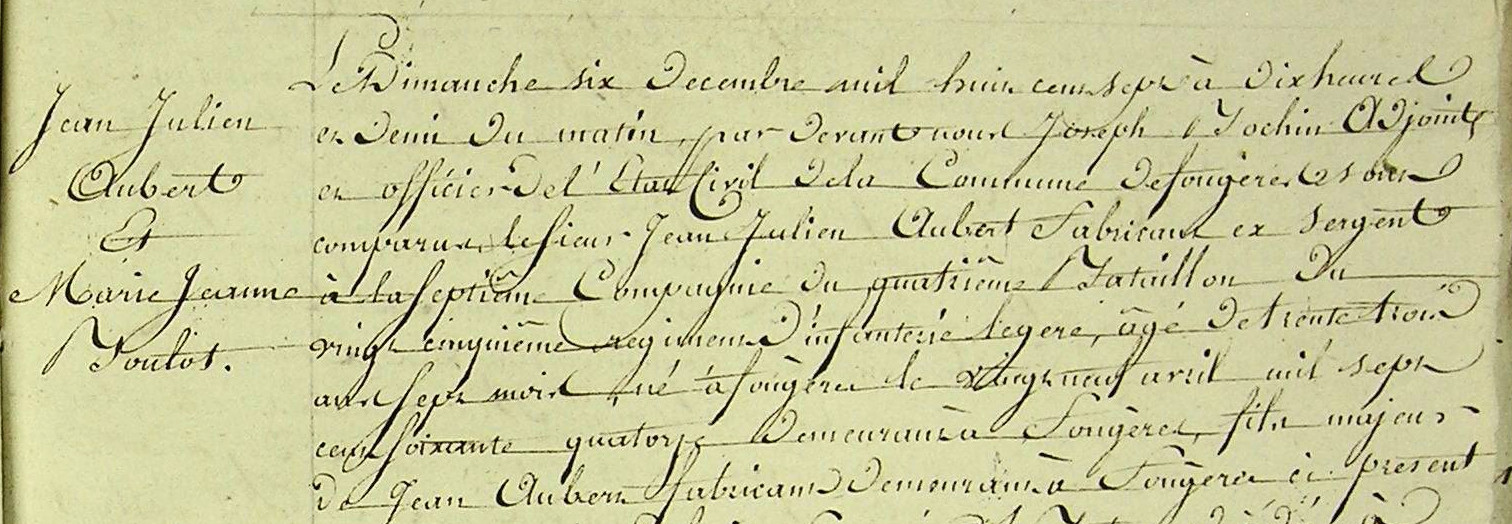 Jean Julien
Aubert
Et
Marie Jeanne
Le Dimanche six Decembre mil huit cent sept à dix heures
et Demi du matin, par devant nous Joseph Adjoint
et officier de l'Etat Civil de la Commune de fougères
comparut le sieur Jean Julien Aubert Fabricant ex sergent
à la septième Compagnie du quatrième Bataillon Du
vingt cinquième regiment d'infanterie legere, âgé de trente trois
ans sept mois né à fougères le vingt neuf avril mil sept
cent soixante quatorze Demeurant à Fougères, fils majeur
de Jean Aubert fabricant Demeurant à Fougères ci present